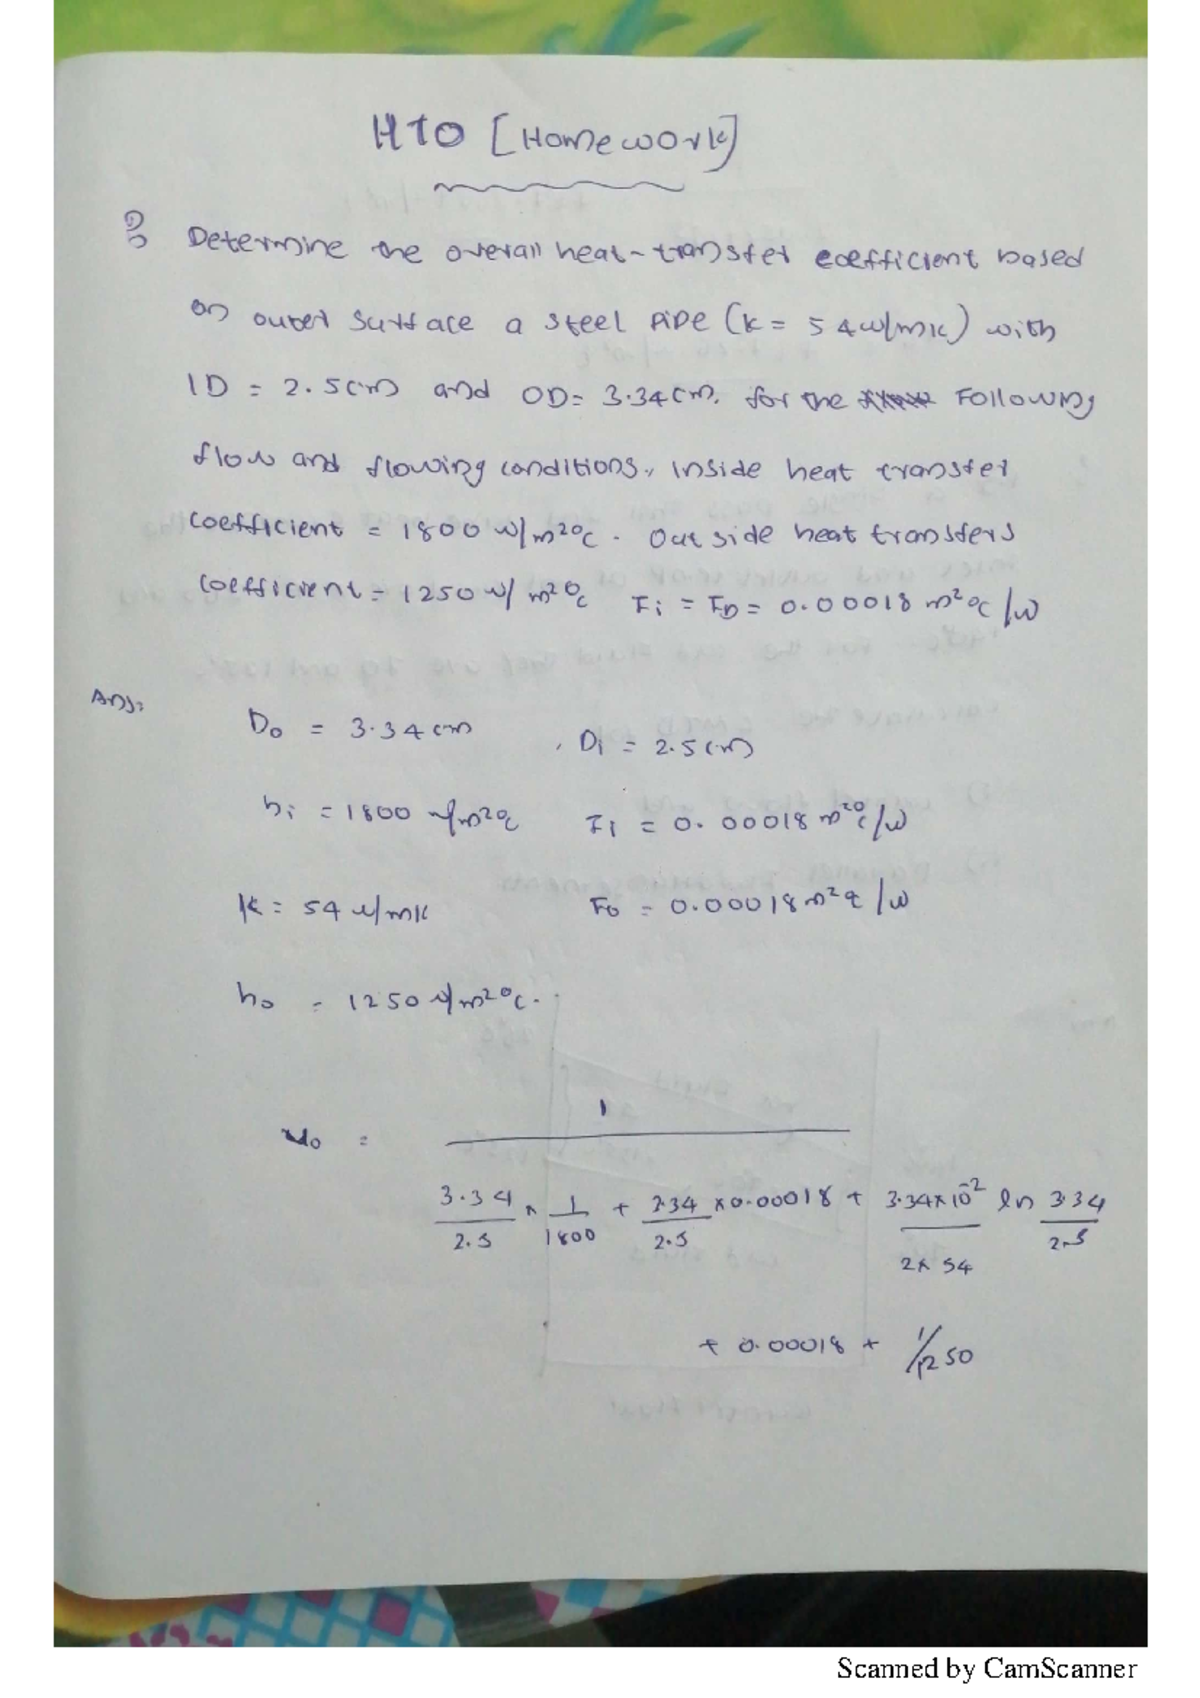 HTO [Homework]
Q Determine the overall heat-transfer coefficient based
on outer surface a steel pipe (k = 54w/mk) with
ID = 2.5cm and OD= 3.34cm. for the Following
flow and flowing conditions., Inside heat transfer
coefficient = 1800 w/m²°c . Out side heat transfers
coefficient = 1250 w/ m²°c Fi = Fo = 0.00018 m²°c /w
Ans:
Do = 3.34cm , Di = 2.5cm
hi = 1800 w/m²°c Fi = 0.00018 m²°c/w
k = 54 w/mk Fo = 0.00018 m²°c /w
ho = 1250 w/m²°c.
1
Uo =
3.34 × 1 + 3.34 ×0.00018 + 3.34×10⁻² ln 3.34
2.5 1800 2.5 2× 54 2.5
+ 0.00018 + 1/1250
Scanned by CamScanner